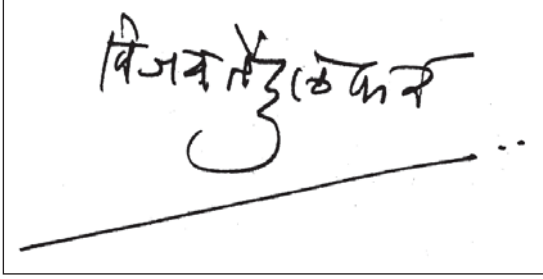 विजय तेंडुलकर